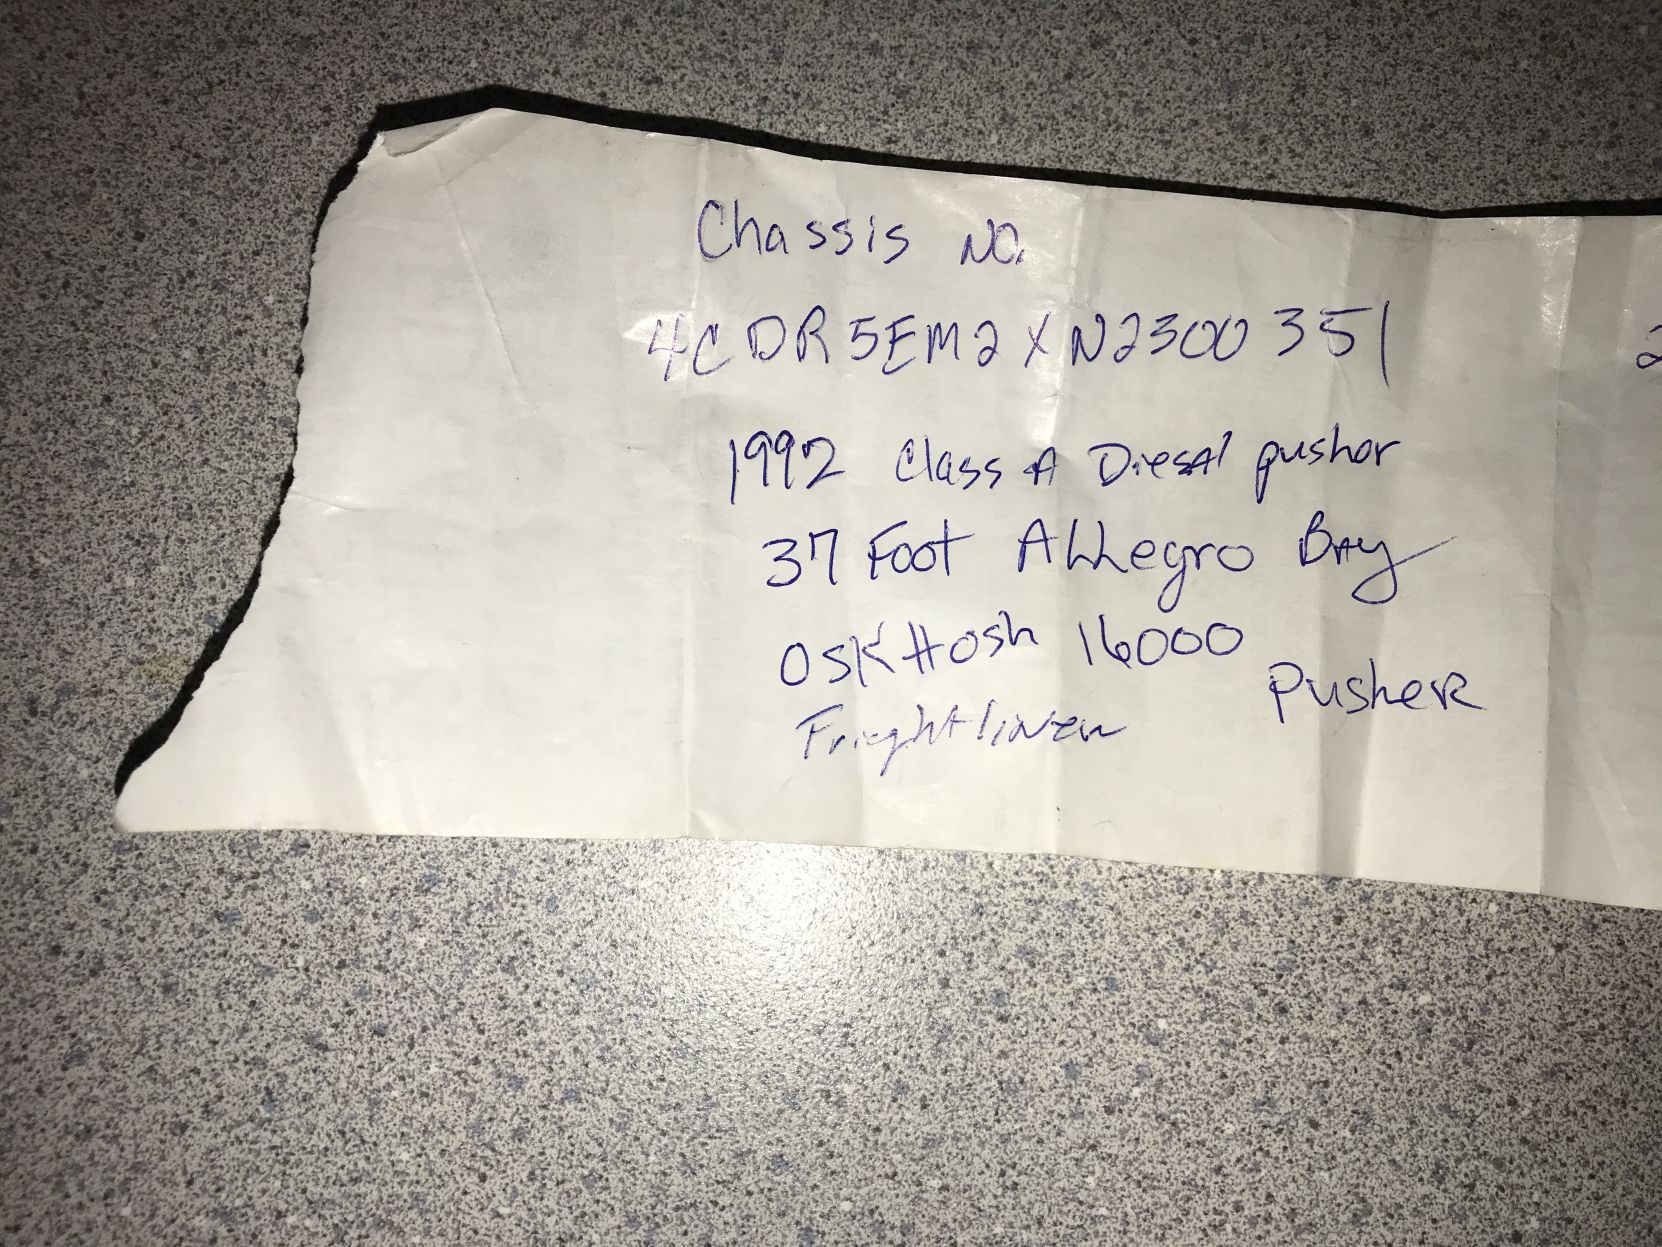 Chassis NO.
4CDR5EM2XN2300351 2
1992 Class A Diesal pushor
37 Foot Allegro Bay
OSKHosh 16000
Pusher
Frieghtliner